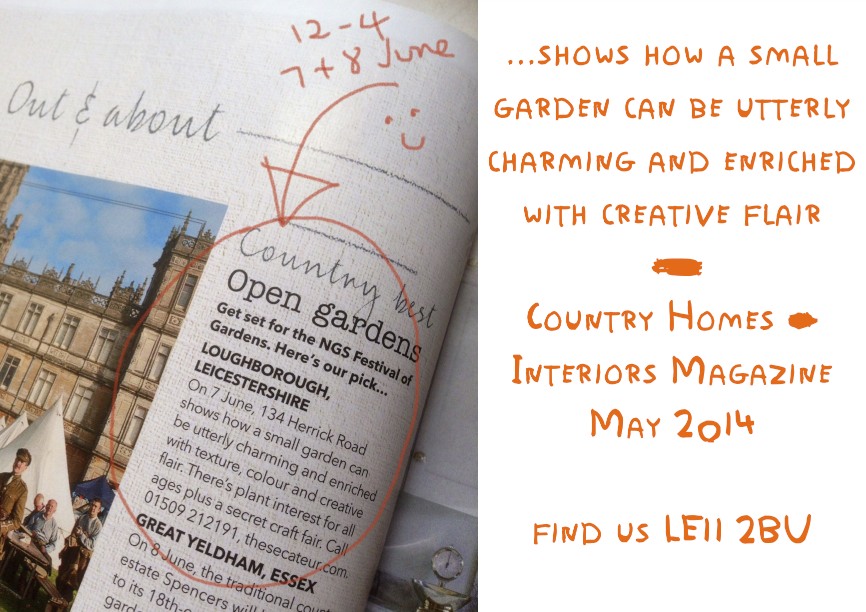 12-4
7+8 June
Out & about
Country best
Open gardens
Get set for the NGS Festival of
Gardens. Here's our pick...
LOUGHBOROUGH,
LEICESTERSHIRE
On 7 June, 134 Herrick Road
shows how a small garden can
be utterly charming and enriched
with texture, colour and creative
flair. There's plant interest for all
ages plus a secret craft fair. Call
01509 212191, thesecateur.com.
GREAT YELDHAM, ESSEX
On 8 June, the traditional
estate Spencers will
to its 18th-
...SHOWS HOW A SMALL
GARDEN CAN BE UTTERLY
CHARMING AND ENRICHED
WITH CREATIVE FLAIR
COUNTRY HOMES
INTERIORS MAGAZINE
MAY 2014
FIND US LE11 2BU